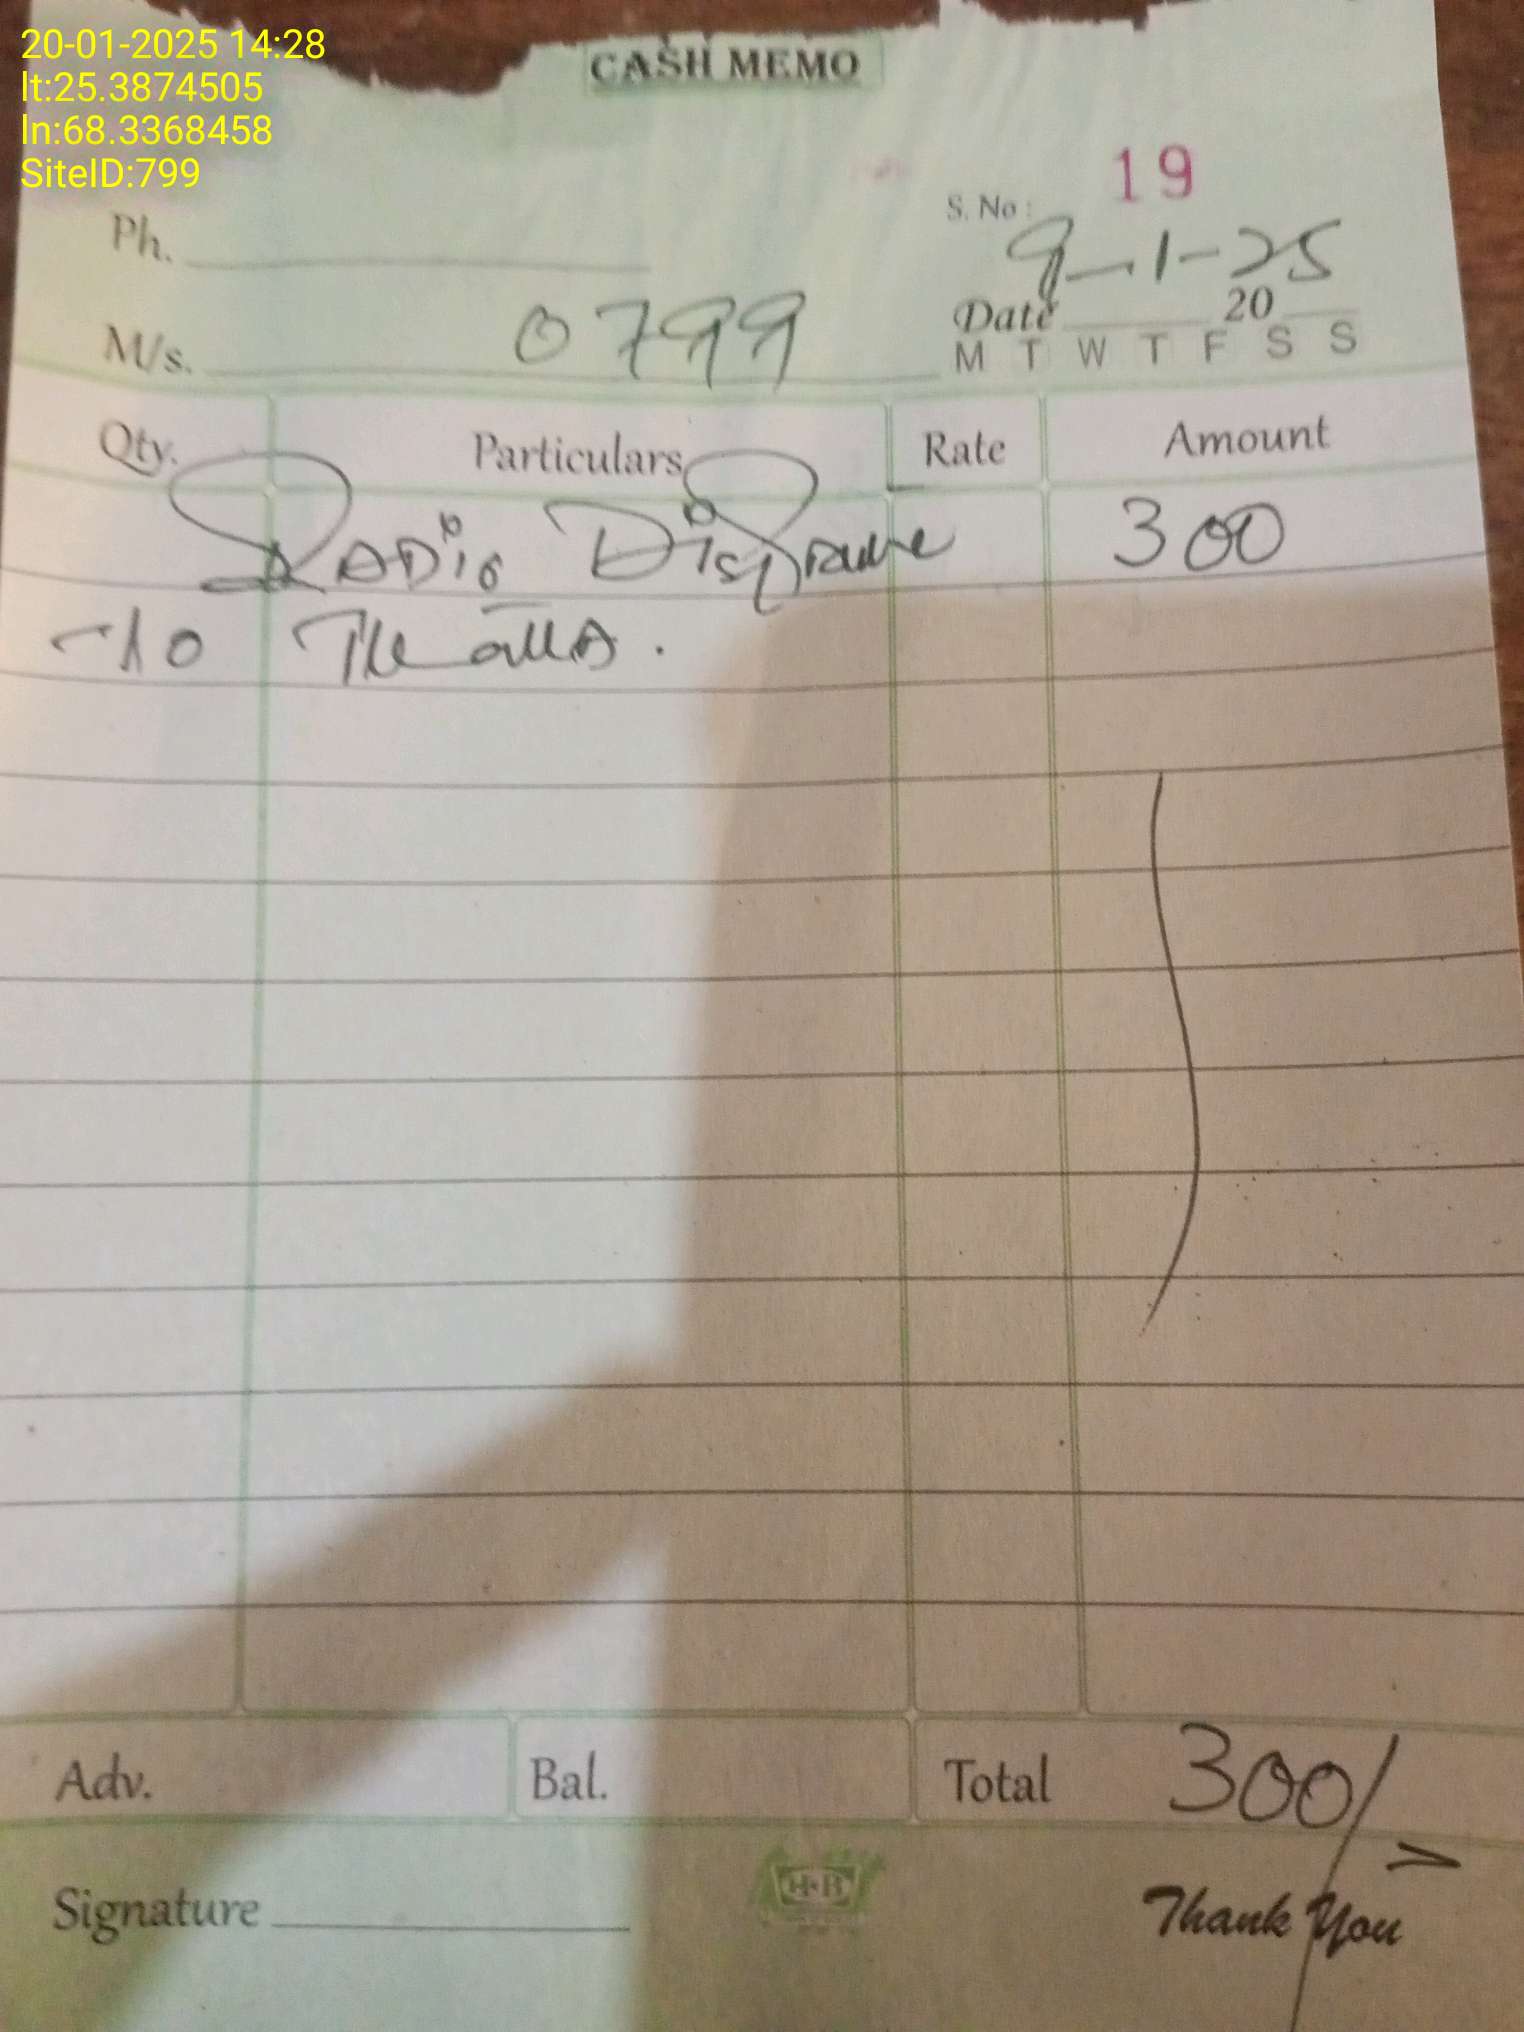 20-01-2025 14:28
lt:25.3874505
ln:68.3368458
SiteID:799
CASH MEMO
S. No : 19
Ph.
9-1-25
Date 20
M/s. 0799
M T W T F S S
Qty. Particulars Rate Amount
RADio 300
To The
Adv. Bal. Total 300/=
Signature
H.B
Thank You